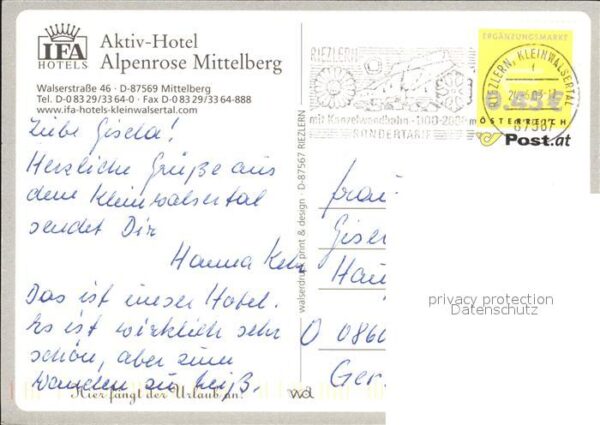 IFA
HOTELS
Aktiv-Hotel
Alpenrose Mittelberg
Walserstraße 46 · D-87569 Mittelberg
Tel. D-0 83 29/33 64-0 · Fax D-0 83 29/33 64-888
www.ifa-hotels-kleinwalsertal.com
Liebe Gisela!
Herzliche Grüße aus
dem Kleinwalsertal
sendet Dir
Hanna
Das ist unser Hotel.
Es ist wirklich sehr
schön, aber zum
Wandern zu heiß.
Hier fängt der Urlaub an.
walserdruck print & design · D-87567 RIEZLERN
wd
RIEZLERN
mit Kanzelwandbahn
SONDERTARIF
ERGÄNZUNGSMARKE
RIEZLERN, KLEINWALSERTAL
0.45€
87567
ÖSTERREICH
Post.at
Frau
Gisel
Hau
D 086
Ger
privacy protection
Datenschutz